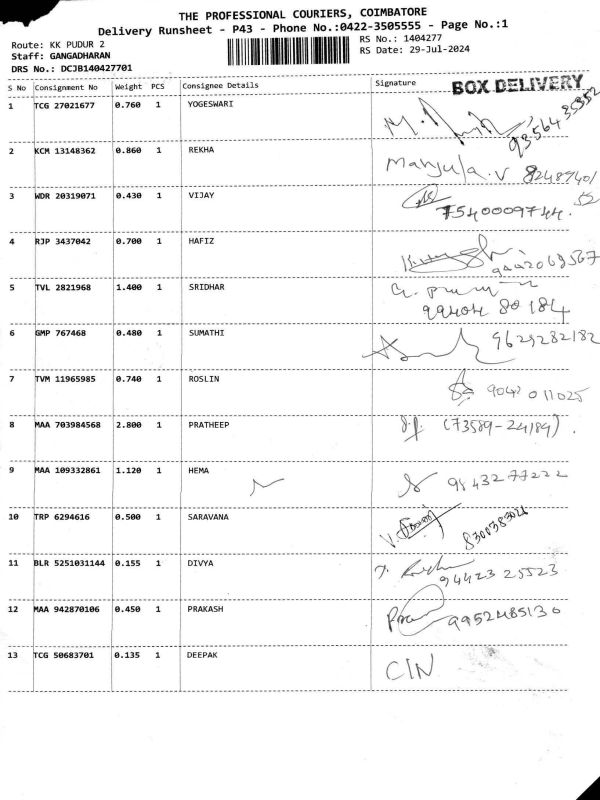 THE PROFESSIONAL COURIERS, COIMBATORE
Delivery Runsheet - P43 - Phone No.:0422-3505555 - Page No.:1
Route: KK PUDUR 2
RS No.: 1404277
Staff: GANGADHARAN
RS Date: 29-Jul-2024
DRS No.: DCJB140427701
S No Consignment No Weight PCS Consignee Details Signature BOX DELIVERY
1 TCG 27021677 0.760 1 YOGESWARI
2 KCM 13148362 0.860 1 REKHA Manjula.V
3 WDR 20319071 0.430 1 VIJAY 7540009744.
4 RJP 3437042 0.700 1 HAFIZ
5 TVL 2821968 1.400 1 SRIDHAR
99404 80184
6 GMP 767468 0.480 1 SUMATHI 9629282182
7 TVM 11965985 0.740 1 ROSLIN 9042011025
8 MAA 703984568 2.800 1 PRATHEEP (73589-24184).
9 MAA 109332861 1.120 1 HEMA 9843277222
10 TRP 6294616 0.500 1 SARAVANA 8300383026
11 BLR 5251031144 0.155 1 DIVYA 94423 25523
12 MAA 942870106 0.450 1 PRAKASH 9952485130
13 TCG 50683701 0.135 1 DEEPAK CIN